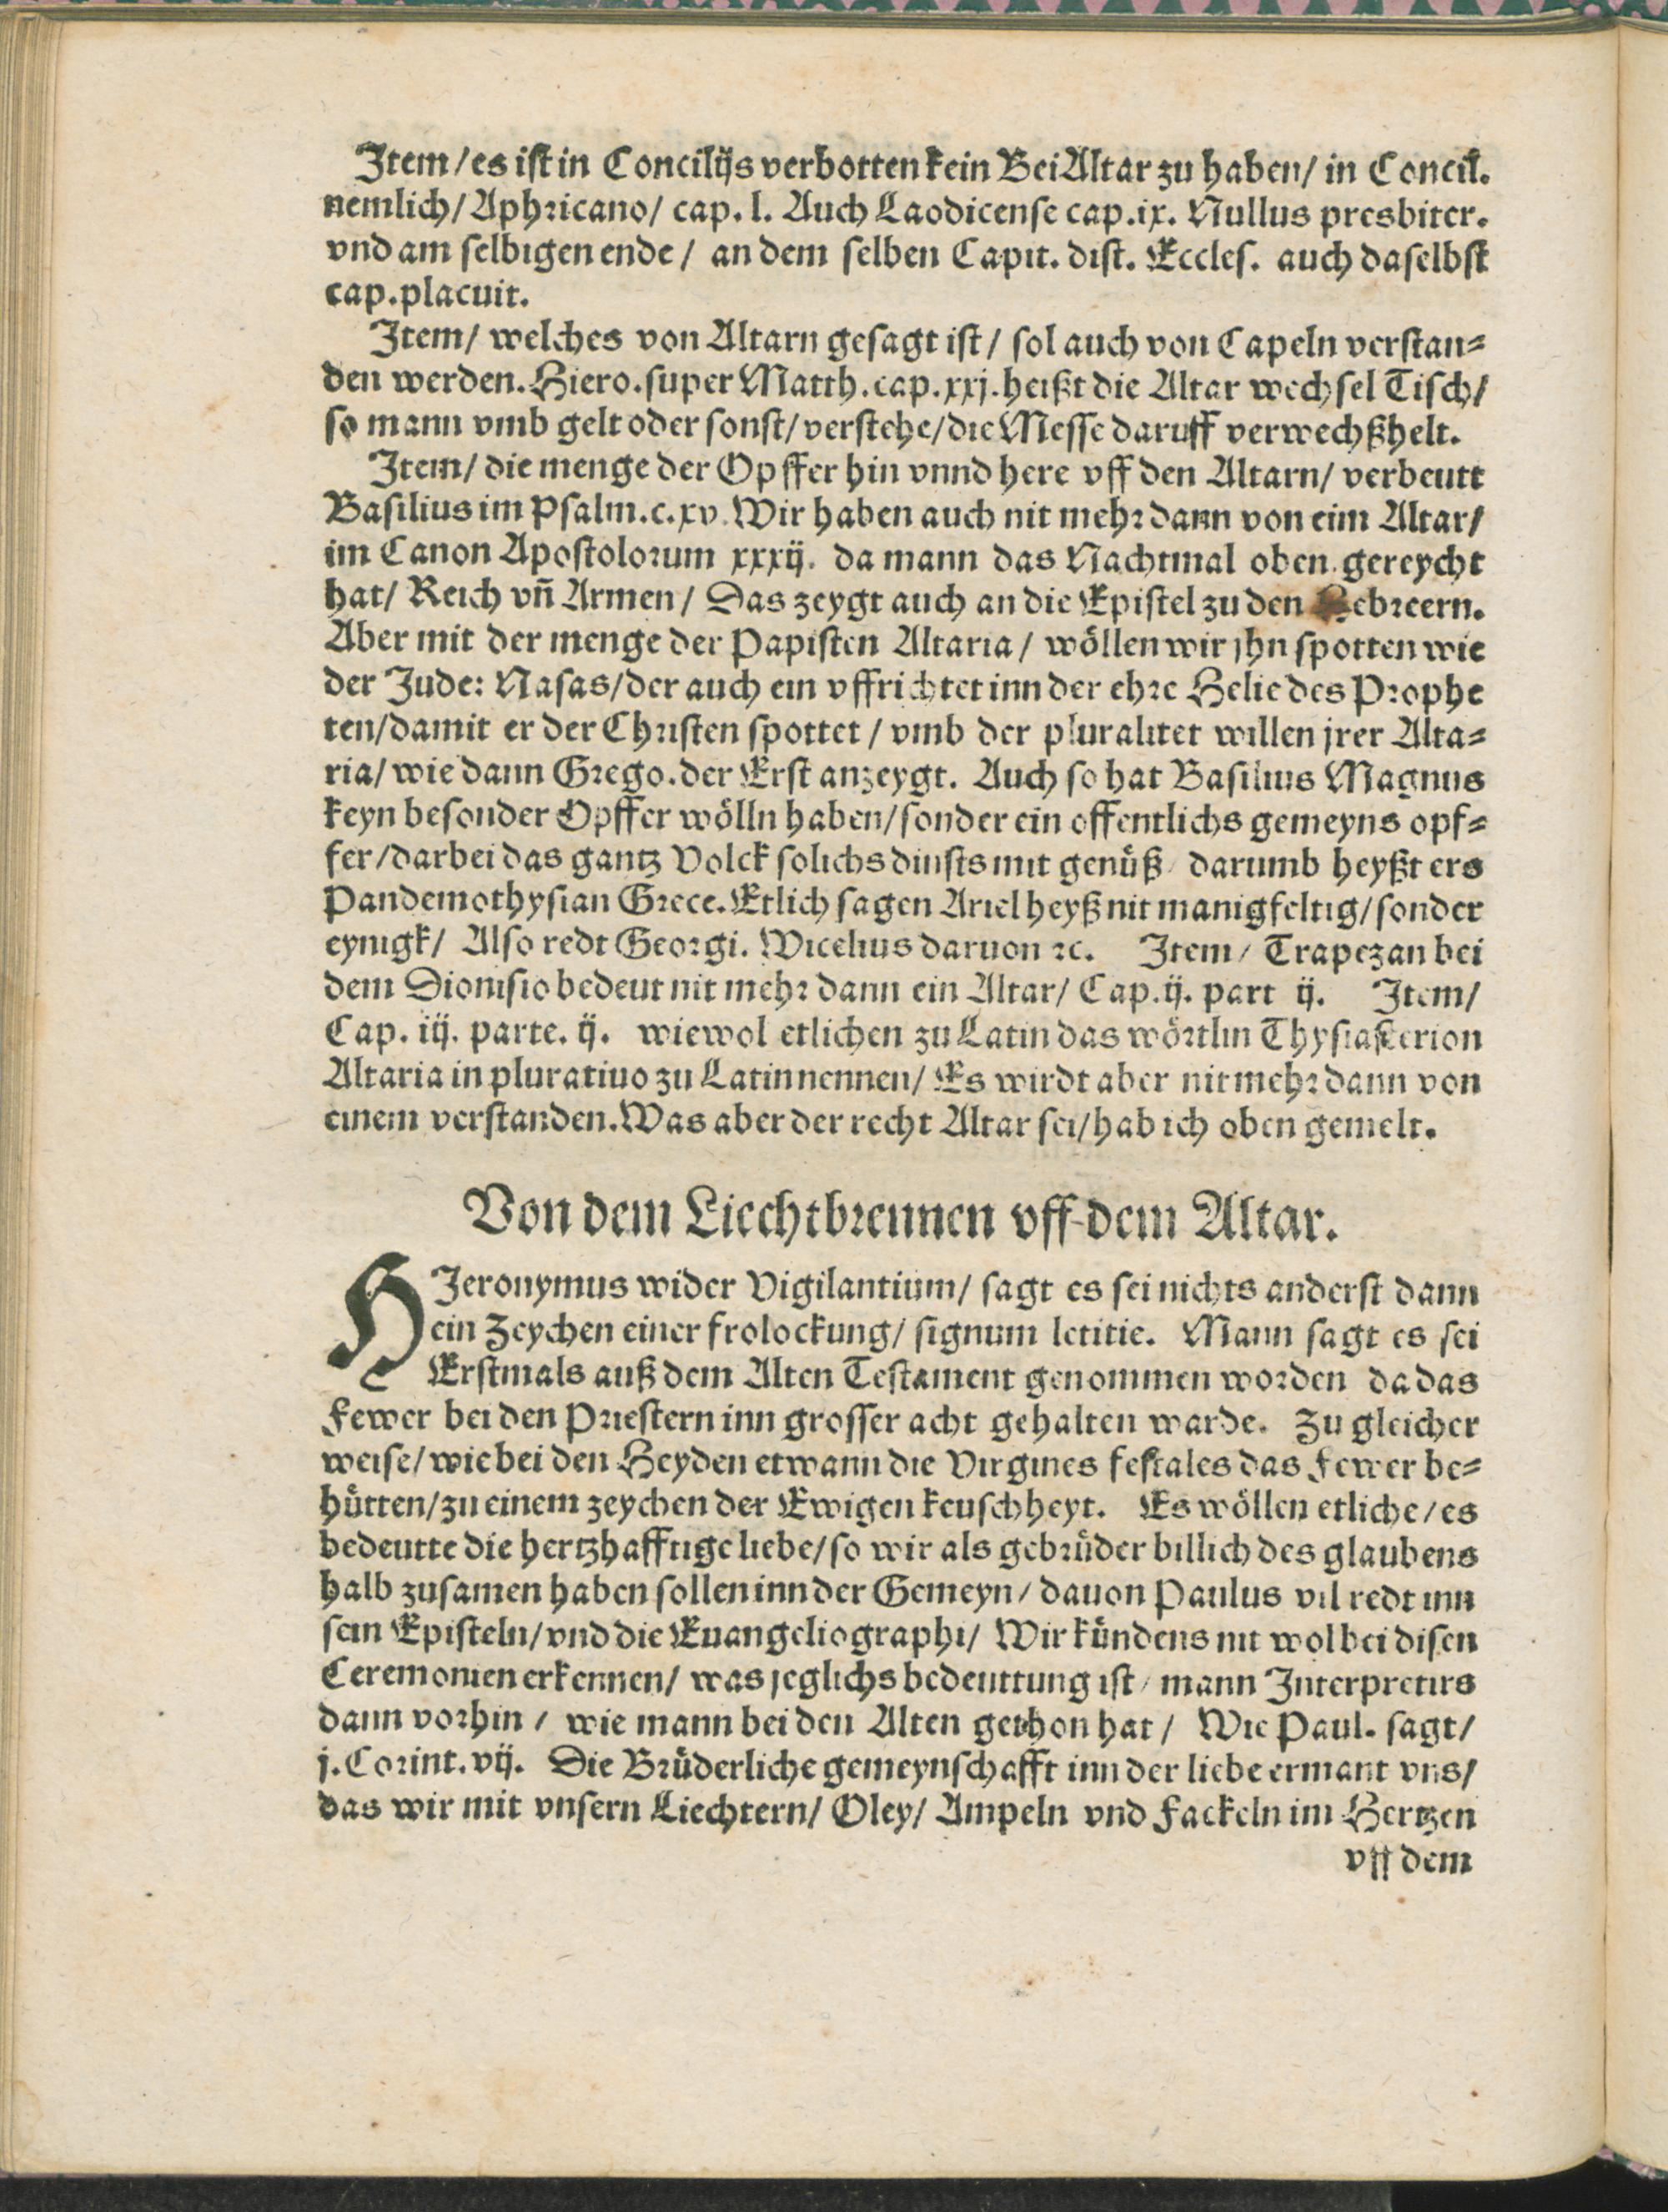 Item/ es ist in Concilijs verbotten kein Bei Altar zu haben/ in Concil.
nemlich/ Aphricano/ cap. l. Auch Laodicense cap. ix. Nullus presbiter.
vnd am selbigen ende / an dem selben Capit. dist. Eccles. auch daselbst
cap. placuit.
Item/ welches von Altarn gesagt ist / sol auch von Capeln verstan-
den werden. Hiero. super Matth. cap. xxj. heißt die Altar wechsel Tisch/
so mann vmb gelt oder sonst/ verstehe/ die Messe daruff verwechßhelt.
Item/ die menge der Opffer hin vnnd here vff den Altarn/ verbeutt
Basilius im Psalm. c. xv. Wir haben auch nit mehr dann von eim Altar/
im Canon Apostolorum xxxij. da mann das Nachtmal oben gereycht
hat/ Reich vñ Armen / Das zeygt auch an die Epistel zu den Hebreern.
Aber mit der menge der Papisten Altaria / wöllen wir jhn spotten wie
der Jude: Nasas/ der auch ein vffrichtet inn der ehre Helie des Prophe
ten/ damit er der Christen spottet / vmb der pluralitet willen jrer Alta-
ria/ wie dann Grego. der Erst anzeygt. Auch so hat Basilius Magnus
keyn besonder Opffer wölln haben/ sonder ein offentlichs gemeyns opf-
fer/ darbei das gantz Volck solichs dinsts mit genüß/ darumb heyßt ers
Pandemothysian Grece. Etlich sagen Ariel heyß nit manigfeltig/ sonder
eynigk/ Also redt Georgi. Wicelius daruon ꝛc. Item/ Trapezan bei
dem Dionisio bedeut nit mehr dann ein Altar/ Cap. ij. part ij. Item/
Cap. iij. parte. ij. wiewol etlichen zu Latin das wörtlin Thysiasterion
Altaria in pluratiuo zu Latin nennen/ Es wirdt aber nit mehr dann von
einem verstanden. Was aber der recht Altar sei/ hab ich oben gemelt.
Von dem Liechtbrennen vff dem Altar.
HJeronymus wider Vigilantium/ sagt es sei nichts anderst dann
ein Zeychen einer frolockung/ signum letitie. Mann sagt es sei
Erstmals auß dem Alten Testament genommen worden da das
Fewer bei den Priestern inn grosser acht gehalten warde. Zu gleicher
weise/ wie bei den Heyden etwann die Virgines festales das Fewer be-
hütten/ zu einem zeychen der Ewigen keuschheyt. Es wöllen etliche/ es
bedeutte die hertzhafftige liebe/ so wir als gebrüder billich des glaubens
halb zusamen haben sollen inn der Gemeyn/ dauon Paulus vil redt inn
sein Episteln/ vnd die Euangeliographi/ Wir kündens nit wol bei disen
Ceremonien erkennen/ was jeglichs bedeuttung ist/ mann Interpretirs
dann vorhin / wie mann bei den Alten gethon hat / Wie Paul. sagt/
j. Corint. vij. Die Brüderliche gemeynschafft inn der liebe ermant vns/
das wir mit vnsern Liechtern/ Oley/ Ampeln vnd Fackeln im Hertzen
vff dem